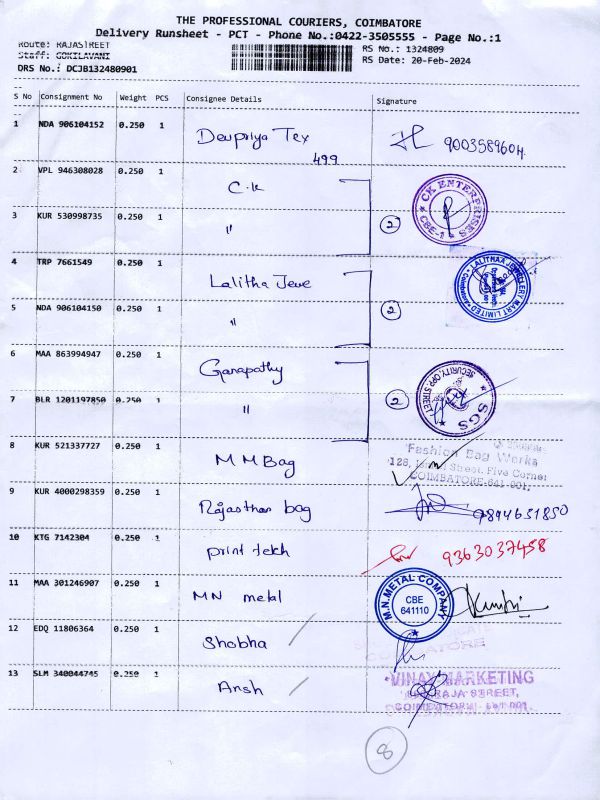 THE PROFESSIONAL COURIERS, COIMBATORE
Delivery Runsheet - PCT - Phone No.:0422-3505555 - Page No.:1
Route: RAJASTREET
RS No.: 1324809
Staff: GOKILAVANI
RS Date: 20-Feb-2024
DRS No.: DCJB132480901
S No Consignment No Weight PCS Consignee Details Signature
1 NDA 906104152 0.250 1 Devpriya Tex 499 9003589604
2 VPL 946308028 0.250 1 C.K CK ENTERPRISES CBE-1
3 KUR 530998735 0.250 1 " 2
4 TRP 7661549 0.250 1 Lalitha Jewe LALITHAA JEWELLERY MART LIMITED
5 NDA 906104150 0.250 1 " 2
6 MAA 863994947 0.250 1 Ganapathy SECURITY OFF SGS
7 BLR 1201197850 0.250 1 " 2
8 KUR 521337727 0.250 1 M M Bag Fashion Bag Works
128, Street, Five Corner
COIMBATORE-641 001.
9 KUR 4000298359 0.250 1 Rajasthan bag 9894651850
10 KTG 7142304 0.250 1 print tech 9363037458
11 MAA 301246907 0.250 1 MN metal M.N.METAL COMPANY CBE 641110
12 EDQ 11806364 0.250 1 Shobha COIMBATORE
13 SLM 340044745 0.250 1 Ansh VINAY MARKETING
RAJA STREET,
COIMBATORE - 641 001.
8